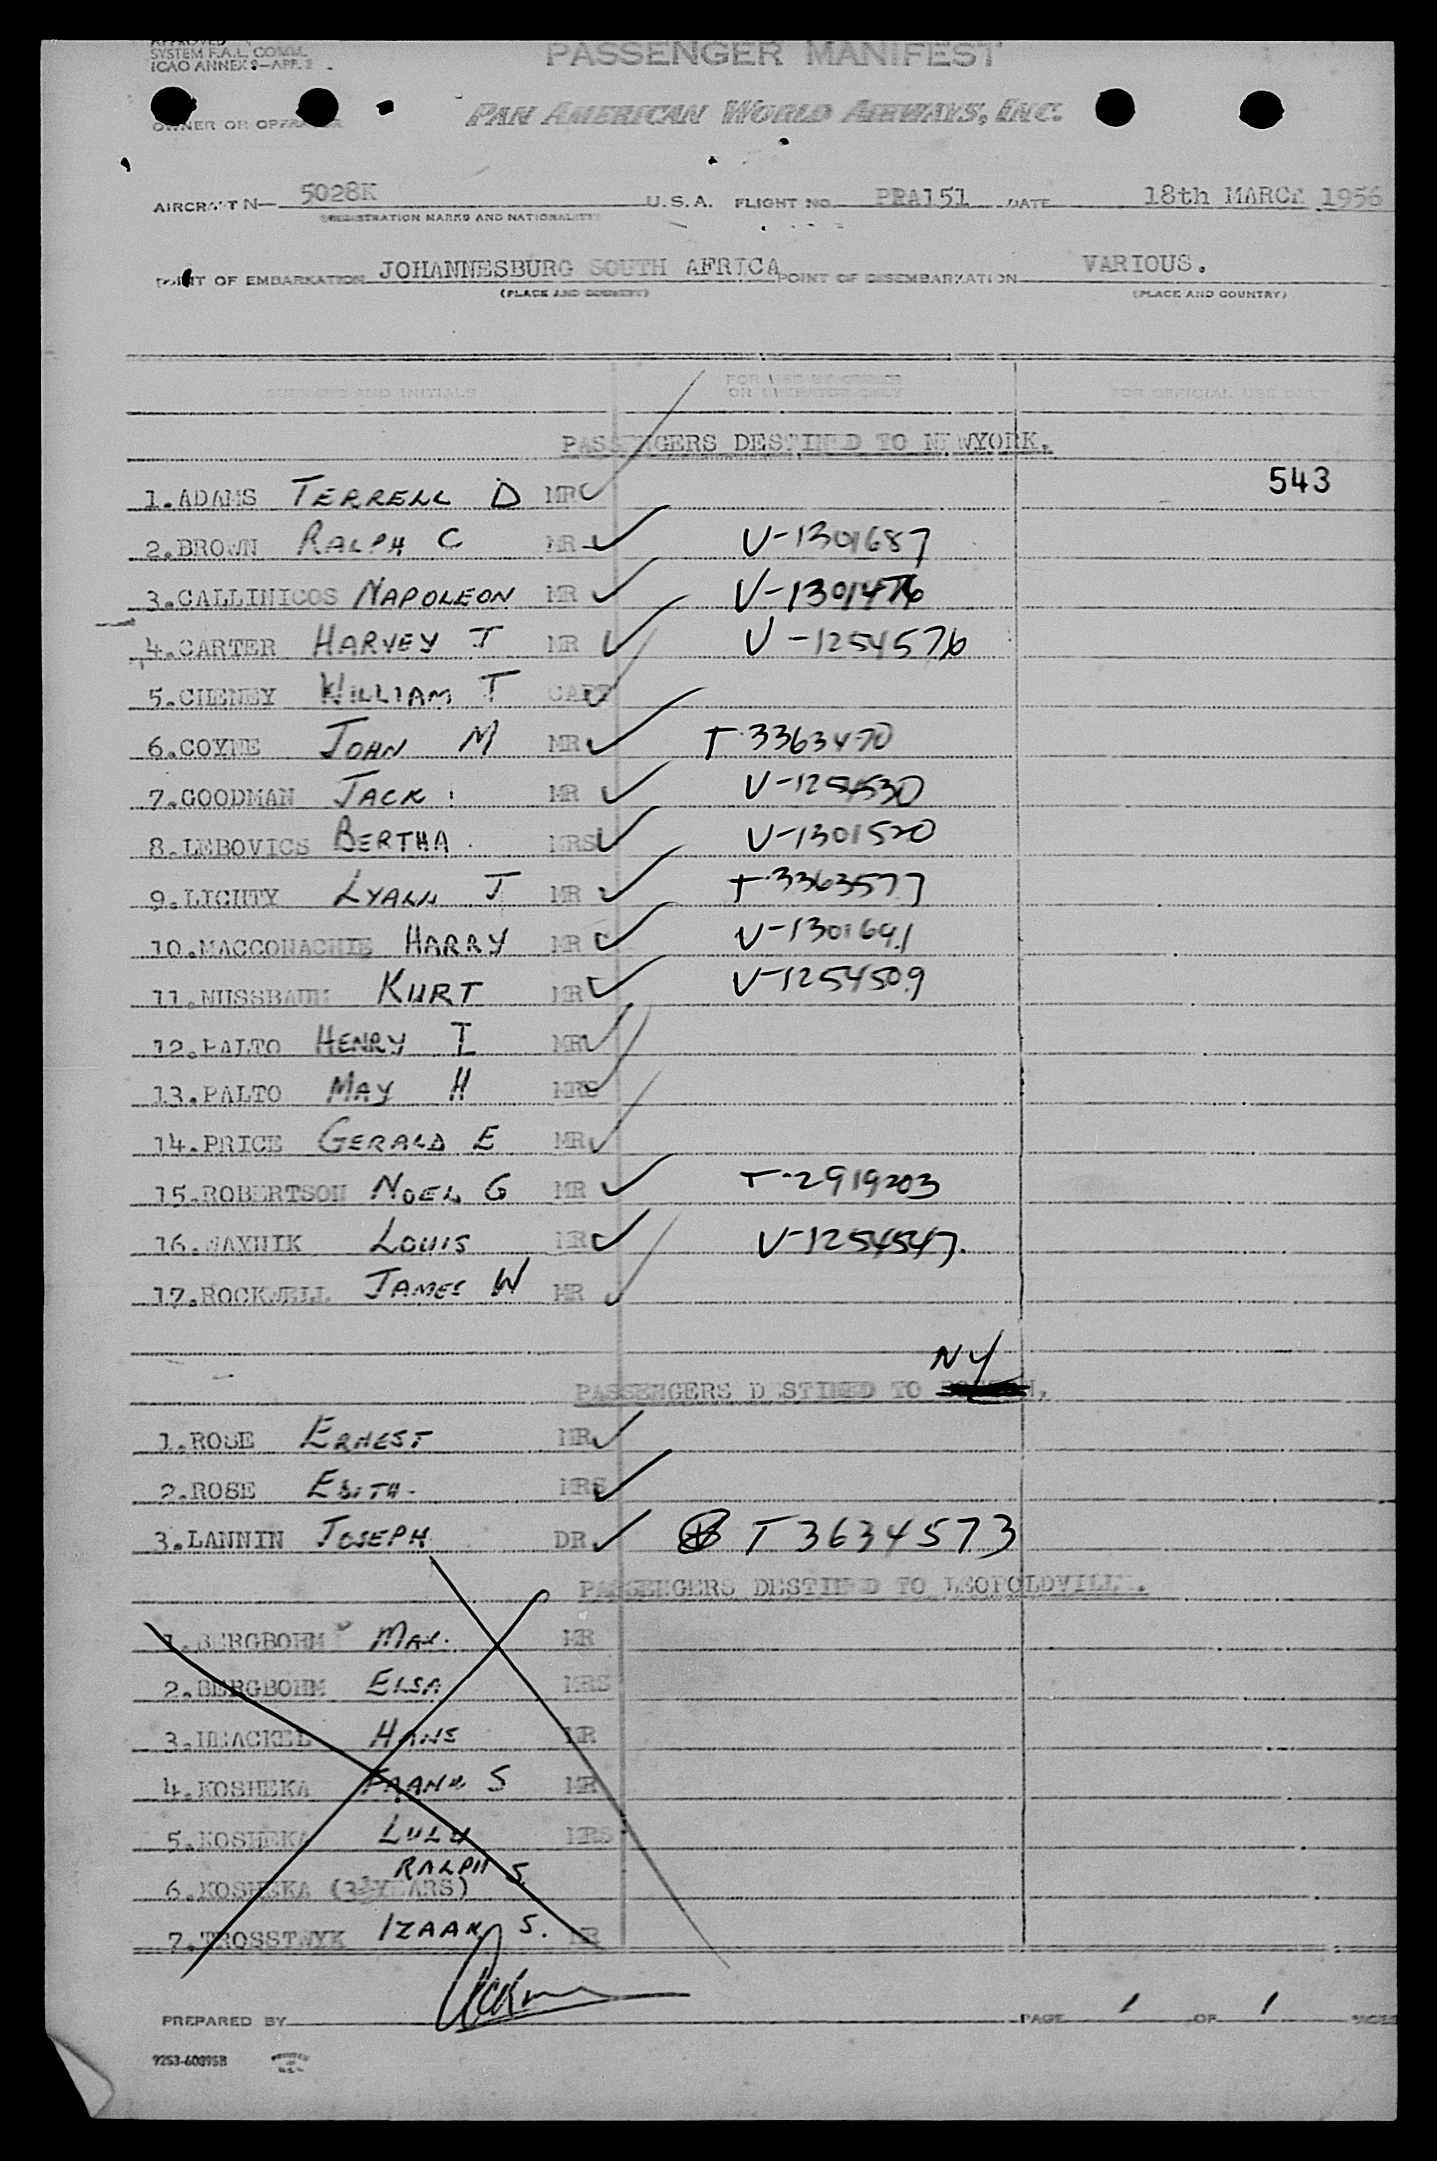 SYSTEM F.A.L. COMM.
ICAO ANNEX 9—APP. 2
PASSENGER MANIFEST
OWNER OR OPERATOR
PAN AMERICAN WORLD AIRWAYS, INC.
AIRCRAFT N— 5028K U.S.A. FLIGHT NO. PRA151 DATE 18th MARCH 1956
(REGISTRATION MARKS AND NATIONALITY)
POINT OF EMBARKATION JOHANNESBURG SOUTH AFRICA POINT OF DISEMBARKATION VARIOUS.
(PLACE AND COUNTRY) (PLACE AND COUNTRY)
SURNAME AND INITIALS FOR USE BY OWNER OR OPERATOR ONLY FOR OFFICIAL USE ONLY
PASSENGERS DESTINED TO NEWYORK.
543
1.ADAMS TERRELL D MR
2.BROWN RALPH C MR V-1301687
3.CALLINICOS NAPOLEON MR V-1301476
4.CARTER HARVEY J MR V-1254576
5.CHENEY WILLIAM T CAPT
6.COYNE JOHN M MR T-3363470
7.GOODMAN JACK MR V-1254530
8.LEBOVICS BERTHA MRS V-1301520
9.LICHTY LYALL J MR T-3363577
10.MACCONACHIE HARRY MR V-1301691
11.NUSSBAUM KURT MR V-1254509
12.PALTO HENRY I MR
13.PALTO MAY H MRS
14.PRICE GERALD E MR
15.ROBERTSON NOEL G MR T-2919203
16.WAYNIK LOUIS MR V-1254547.
17.ROCKWELL JAMES W MR
NY
PASSENGERS DESTINED TO BOSTON.
1.ROSE ERNEST MR
2.ROSE EDITH MRS
3.LANNIN JOSEPH DR T3634573
PASSENGERS DESTINED TO LEOPOLDVILLE.
1.BERGBOHM MAX MR
2.BERGBOHM ELSA MRS
3.HEACKEL HANS MR
4.KOSHEKA FRANK S MR
5.KOSHEKA LULU MRS
RALPH S
6.KOSHEKA (3½YEARS)
7.TROSSTWYK IZAAK S. MR
PREPARED BY PAGE 1 OF 1 PAGES
9253-60895B PRINTED IN U.S.A.